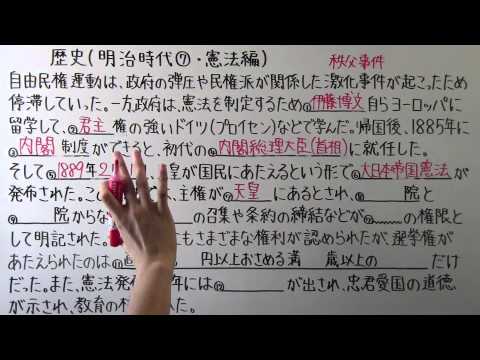 歴史(明治時代⑦・憲法編)
秩父事件
自由民権運動は、政府の弾圧や民権派が関係した激化事件が起こったため
停滞していった。一方政府は、憲法を制定するため 伊藤博文 自らヨーロッパに
留学して、 君主 権の強いドイツ(プロイセン)などで学んだ。帰国後、1885年に
内閣 制度ができると、初代の 内閣総理大臣(首相) に就任した。
そして 1889年2 皇が国民にあたえるという形で 大日本帝国憲法 が
発布された。こ 、主権が 天皇 にあるとされ、 院と
院からな の召集や条約の締結などが の権限と
して明記された。 にもさまざまな権利が認められたが、選挙権が
あたえられたのは 円以上おさめる満 歳以上の だけ
だった。また、憲法発 年には が出され、忠君愛国の道徳
が示され、教育の